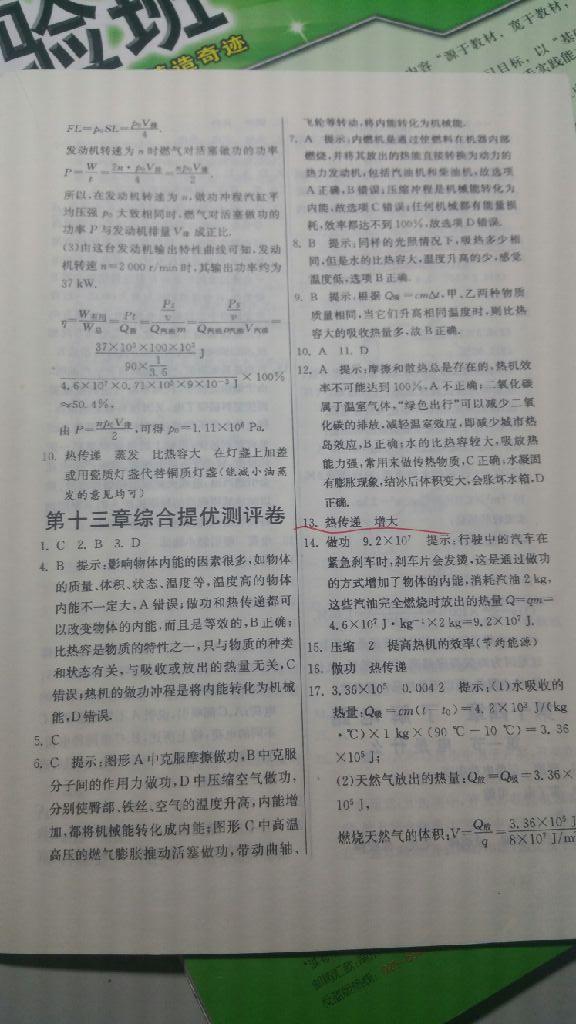 验班
造奇迹
内容“源于教材，宽于教材，
目标，以“基
FL=p₀SL=p₀V排/4.
发动机转速为 n 时燃气对活塞做功的功率
P=W/t=2n·p₀V排/4=np₀V排/2.
所以，在发动机转速为 n，做功冲程汽缸平
均压强 p₀ 大致相同时，燃气对活塞做功的
功率 P 与发动机排量 V排 成正比.
(3)由这台发动机输出特性曲线可知，发动
机转速 n=2 000 r/min 时，其输出功率约为
37 kW.
η=W有用/W总=Pt/Q放=P(s/v)/(Q汽油m)=P(s/v)/(q汽油ρ汽油V汽油)=
(37×10³×100×10³/(90×1/3.6) J)/(4.6×10⁷×0.71×10³×9×10⁻³ J)×100%
≈50.4%，
由 P=np₀V排/2，可得 p₀=1.11×10⁶ Pa.
10. 热传递 蒸发 比热容大 在灯盏上加盖
或用瓷质灯盏代替铜质灯盏(能减小油蒸
发的意见均可)
第十三章综合提优测评卷
1. C 2. B 3. D
4. B 提示：影响物体内能的因素很多，如物体
的质量、体积、状态、温度等，温度高的物体
内能不一定大，A 错误；做功和热传递都可
以改变物体的内能，而且是等效的，B 正确；
比热容是物质的特性之一，只与物质的种类
和状态有关，与吸收或放出的热量无关，C
错误；热机的做功冲程是将内能转化为机械
能，D 错误.
5. C
6. C 提示：图形 A 中克服摩擦做功，B 中克服
分子间的作用力做功，D 中压缩空气做功，
分别使臀部、铁丝、空气的温度升高，内能增
加，都将机械能转化成内能；图形 C 中高温
高压的燃气膨胀推动活塞做功，带动曲轴、
飞轮等转动，将内能转化为机械能.
7. A 提示：内燃机是通过使燃料在机器内部
燃烧，并将其放出的热能直接转换为动力的
热力发动机，包括汽油机和柴油机，故选项
A 正确，B 错误；压缩冲程是机械能转化为
内能，故选项 C 错误；任何机械都有能量损
耗，效率都达不到 100%，故选项 D 错误.
8. B 提示：同样的光照情况下，吸热多少相
同，但是水的比热容大，温度升高的少，感觉
温度低，选项 B 正确.
9. B 提示：根据 Q吸=cmΔt，甲、乙两种物质
质量相同，当它们升高相同温度时，则比热
容大的吸收热量多，故 B 正确.
10. A 11. D
12. A 提示：摩擦和散热总是存在的，热机效
率不可能达到 100%，A 不正确；二氧化碳
属于温室气体，“绿色出行”可以减少二氧
化碳的排放，减轻温室效应，即减少城市热
岛效应，B 正确；水的比热容较大，吸放热
能力强，常用来做传热物质，C 正确；水凝固
有膨胀现象，结冰后体积变大，会胀坏水箱，D
正确.
13. 热传递 增大
14. 做功 9.2×10⁷ 提示：行驶中的汽车在
紧急刹车时，刹车片会发烫，这是通过做功
的方式增加了物体的内能，消耗汽油 2 kg，
这些汽油完全燃烧时放出的热量 Q=qm=
4.6×10⁷ J·kg⁻¹×2 kg=9.2×10⁷ J.
15. 压缩 2 提高热机的效率(节约能源)
16. 做功 热传递
17. 3.36×10⁵ 0.004 2 提示：(1)水吸收的
热量：Q吸=cm(t-t₀)=4.2×10³ J/(kg
·℃)×1 kg×(90 ℃-10 ℃)=3.36
×10⁵ J；
(2)天然气放出的热量：Q放=Q吸=3.36×
10⁵ J，
燃烧天然气的体积：V=Q放/q=3.36×10⁵ J/8×10⁷ J/m